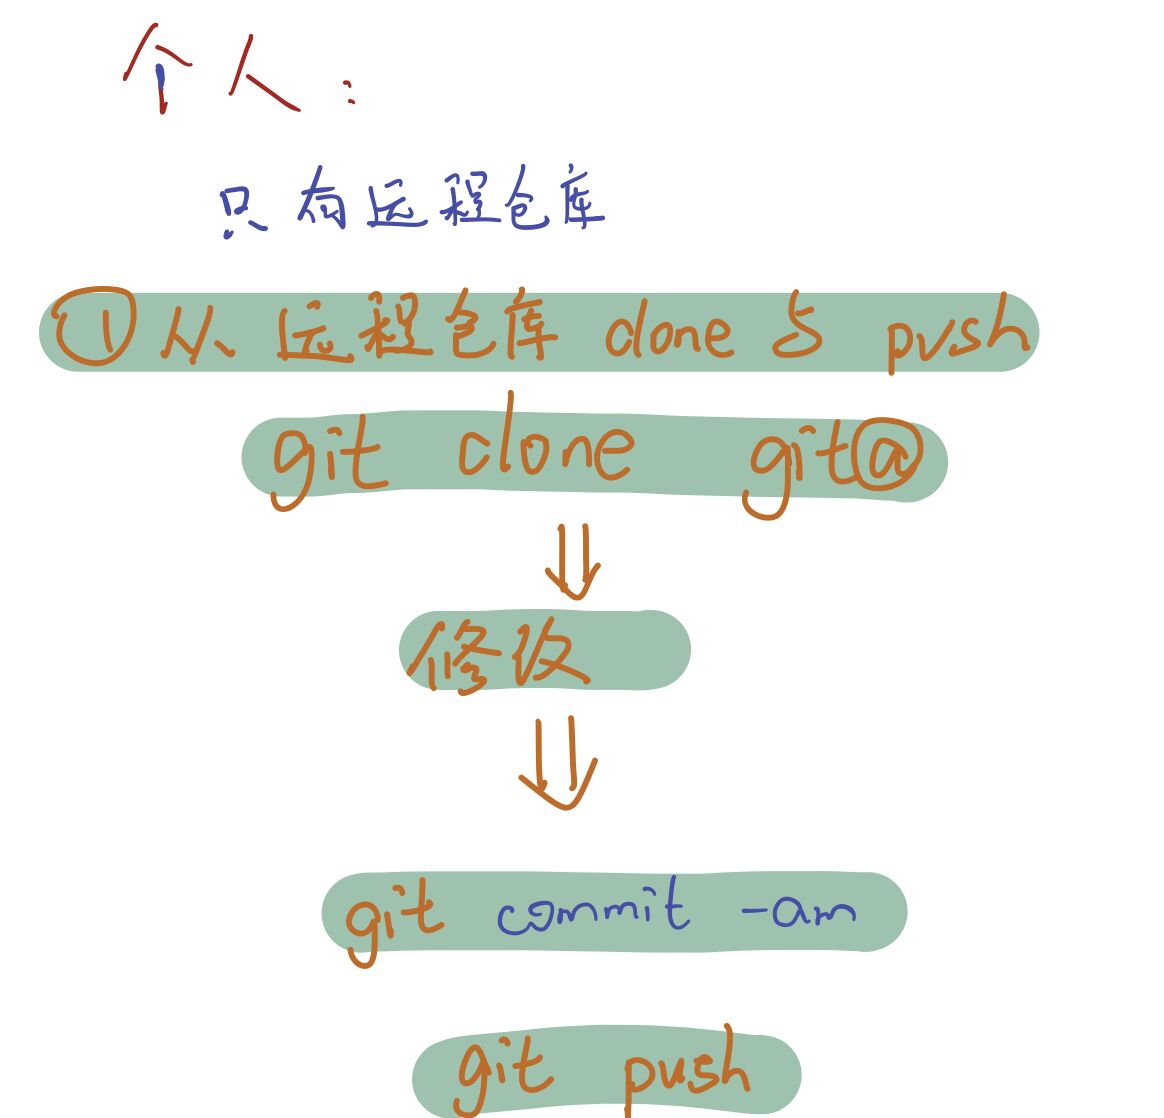 个人：
只有远程仓库
① 从远程仓库 clone 与 push
git clone git@
修改
git commit -am
git push